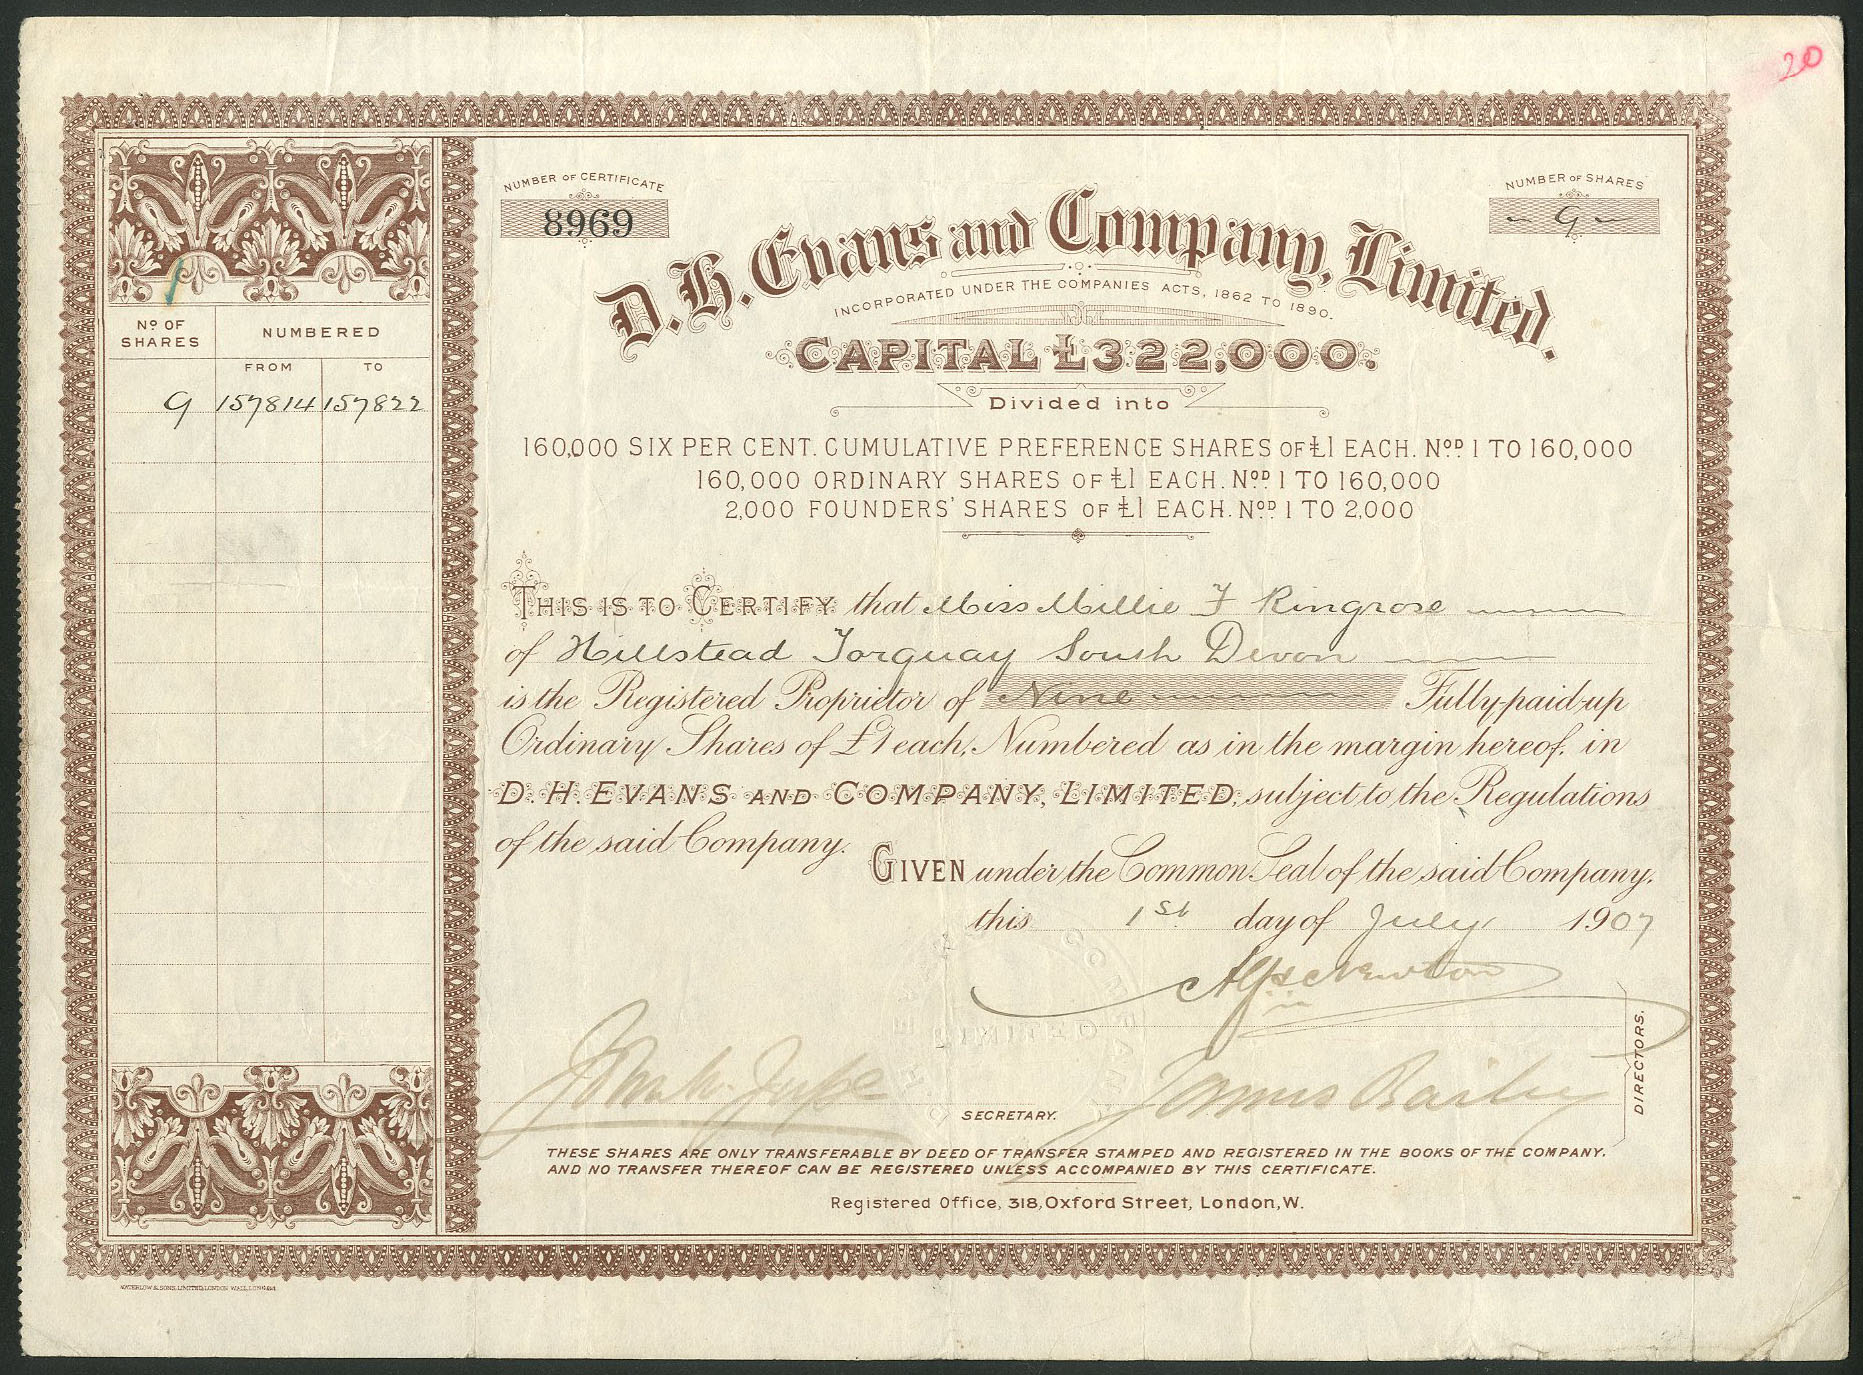 20
NUMBER OF CERTIFICATE
8969
NUMBER OF SHARES
9
D. H. Evans and Company, Limited.
INCORPORATED UNDER THE COMPANIES ACTS, 1862 TO 1890.
CAPITAL £322,000.
Divided into
160,000 SIX PER CENT. CUMULATIVE PREFERENCE SHARES OF £1 EACH. NOD. 1 TO 160,000
160,000 ORDINARY SHARES OF £1 EACH. NOD. 1 TO 160,000
2,000 FOUNDERS' SHARES OF £1 EACH. NOD. 1 TO 2,000
No OF SHARES
NUMBERED
FROM TO
9 157814 157822
THIS IS TO CERTIFY that Miss Millie F Ringrose
of Hillstead Torquay South Devon
is the Registered Proprietor of Nine Fully-paid-up
Ordinary Shares of £1 each, Numbered as in the margin hereof, in
D. H. EVANS AND COMPANY, LIMITED, subject to the Regulations
of the said Company.
GIVEN under the Common Seal of the said Company,
this 1st day of July 1907
Newton
James Bailey
DIRECTORS.
SECRETARY.
THESE SHARES ARE ONLY TRANSFERABLE BY DEED OF TRANSFER STAMPED AND REGISTERED IN THE BOOKS OF THE COMPANY.
AND NO TRANSFER THEREOF CAN BE REGISTERED UNLESS ACCOMPANIED BY THIS CERTIFICATE.
Registered Office, 318, Oxford Street, London, W.
WATERLOW & SONS, LIMITED, LONDON WALL, LONDON